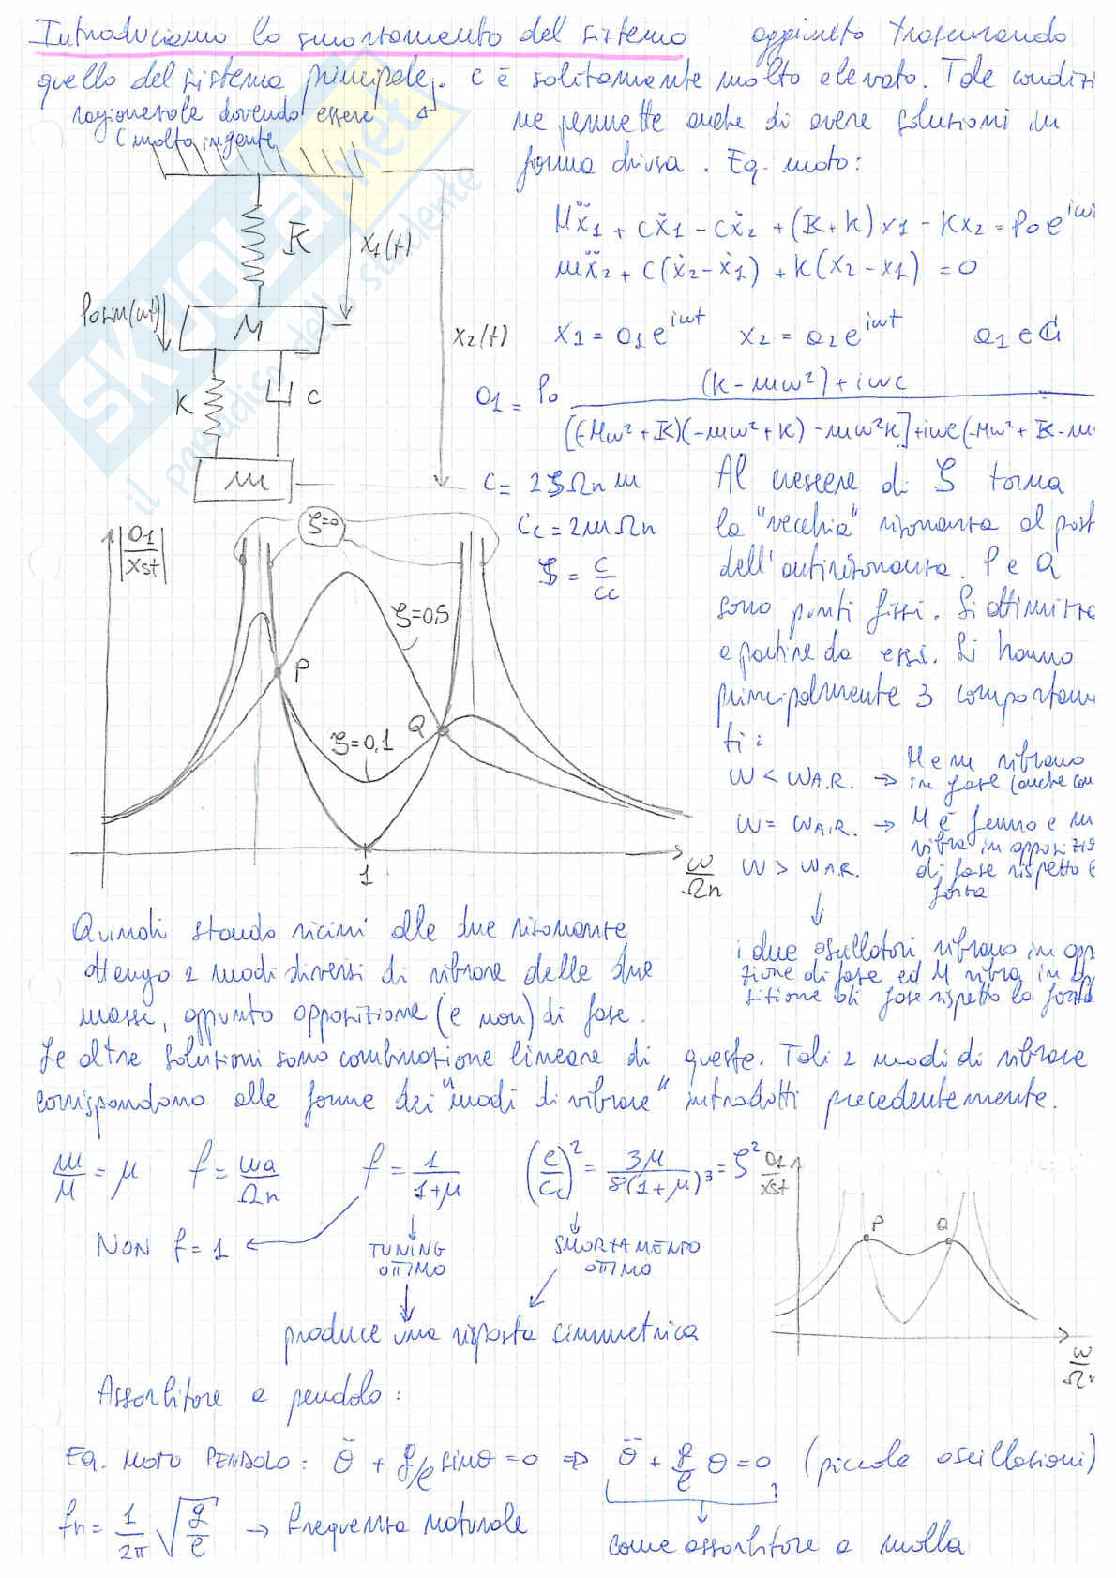 Introduciamo lo smorzamento del sistema aggiunto trascurando
quello del sistema principale. c è solitamente molto elevato. Tale condizi
ragionevole dovendo essere
C molto ingente
ne permette anche di avere soluzioni in
forma chiusa. Eq. moto:
Mẍ1 + cẋ1 - cẋ2 + (K+k)x1 - Kx2 = P0 e^iω
mẍ2 + c(ẋ2-ẋ1) + k(x2-x1) = 0
K
x1(t)
P0 sin(ωt)
M
x2(t)
x1 = a1 e^iωt x2 = a2 e^iωt a1 ∈ ℂ
K
C
a1 = P0 (k-mω²)+iωc / [(-Mω²+K)(-mω²+k) - mω²k]+iωc(-Mω²+K-m
m
c = 2ξΩn m
Cc = 2mΩn
ξ = c/cc
Al crescere di ξ torna
la "vecchia" risonanza al post
dell'antirisonanza. P e Q
sono punti fissi. Si ottimizza
a partire da essi. Si hanno
principalmente 3 comportam
ti:
ω < ωA.R. → M e m vibrano
in fase (anche con
ω = ωA.R. → M è fermo e m
vibra in opposizi
di fase rispetto
forza
ω > ωA.R.
↓
i due oscillatori vibrano in opp
zione di fase ed M vibra in op
sizione di fase rispetto la forza
|a1/xst|
ξ=0
ξ=0,5
P
Q
ξ=0,1
1
ω/Ωn
Quindi stando vicini alle due risonanze
ottengo 2 modi diversi di vibrare delle due
masse, appunto opposizione (e non) di fase.
Le altre soluzioni sono combinazione lineare di queste. Tali 2 modi di vibrare
corrispondono alle forme dei "modi di vibrare" introdotti precedentemente.
m/M = μ f = ωa/Ωn f = 1/(1+μ) (c/cc)² = 3μ/8(1+μ)³ = ξ²
NON f=1 ←
TUNING
OTTIMO
SMORZAMENTO
OTTIMO
produce una risposta simmetrica
a1/xst
P
Q
ω/Ωn
Assorbitore a pendolo:
Eq. MOTO PENDOLO: θ̈ + g/l sinθ = 0 ⇒ θ̈ + g/l θ = 0 (piccole oscillazioni)
fn = 1/2π √g/l → frequenza naturale
come assorbitore a molla
SKUOLA.net
il paradiso dello studente